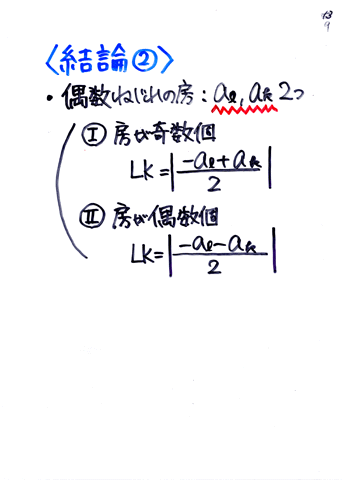 〈結論②〉
・偶数ねじれの房：aℓ, ak 2つ
Ⅰ 房が奇数個
LK=|(-aℓ+ak)/2|
Ⅱ 房が偶数個
LK=|(-aℓ-ak)/2|